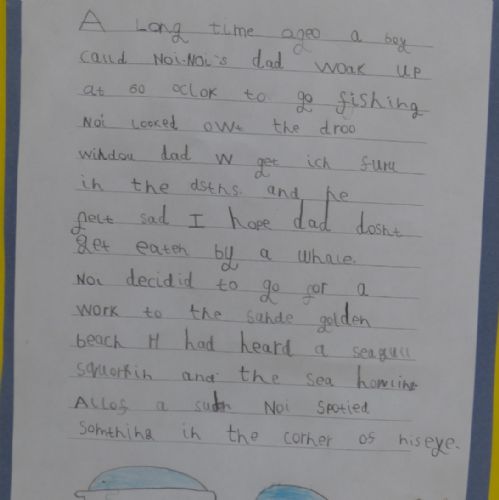 A Long time ageo a boy
caud Noi-Noi's dad woak up
at 50 oclok to go fishing
Noi Looked owt the
window dad w get ich
in the dsths. and he
felt sad I hope dad dosnt
get eaten by a whale.
Noi decidid to go for a
work to the sande golden
beach H had heard a seagull
squorkin and the sea
a Noi spotied
somthing in the corner of his eye.